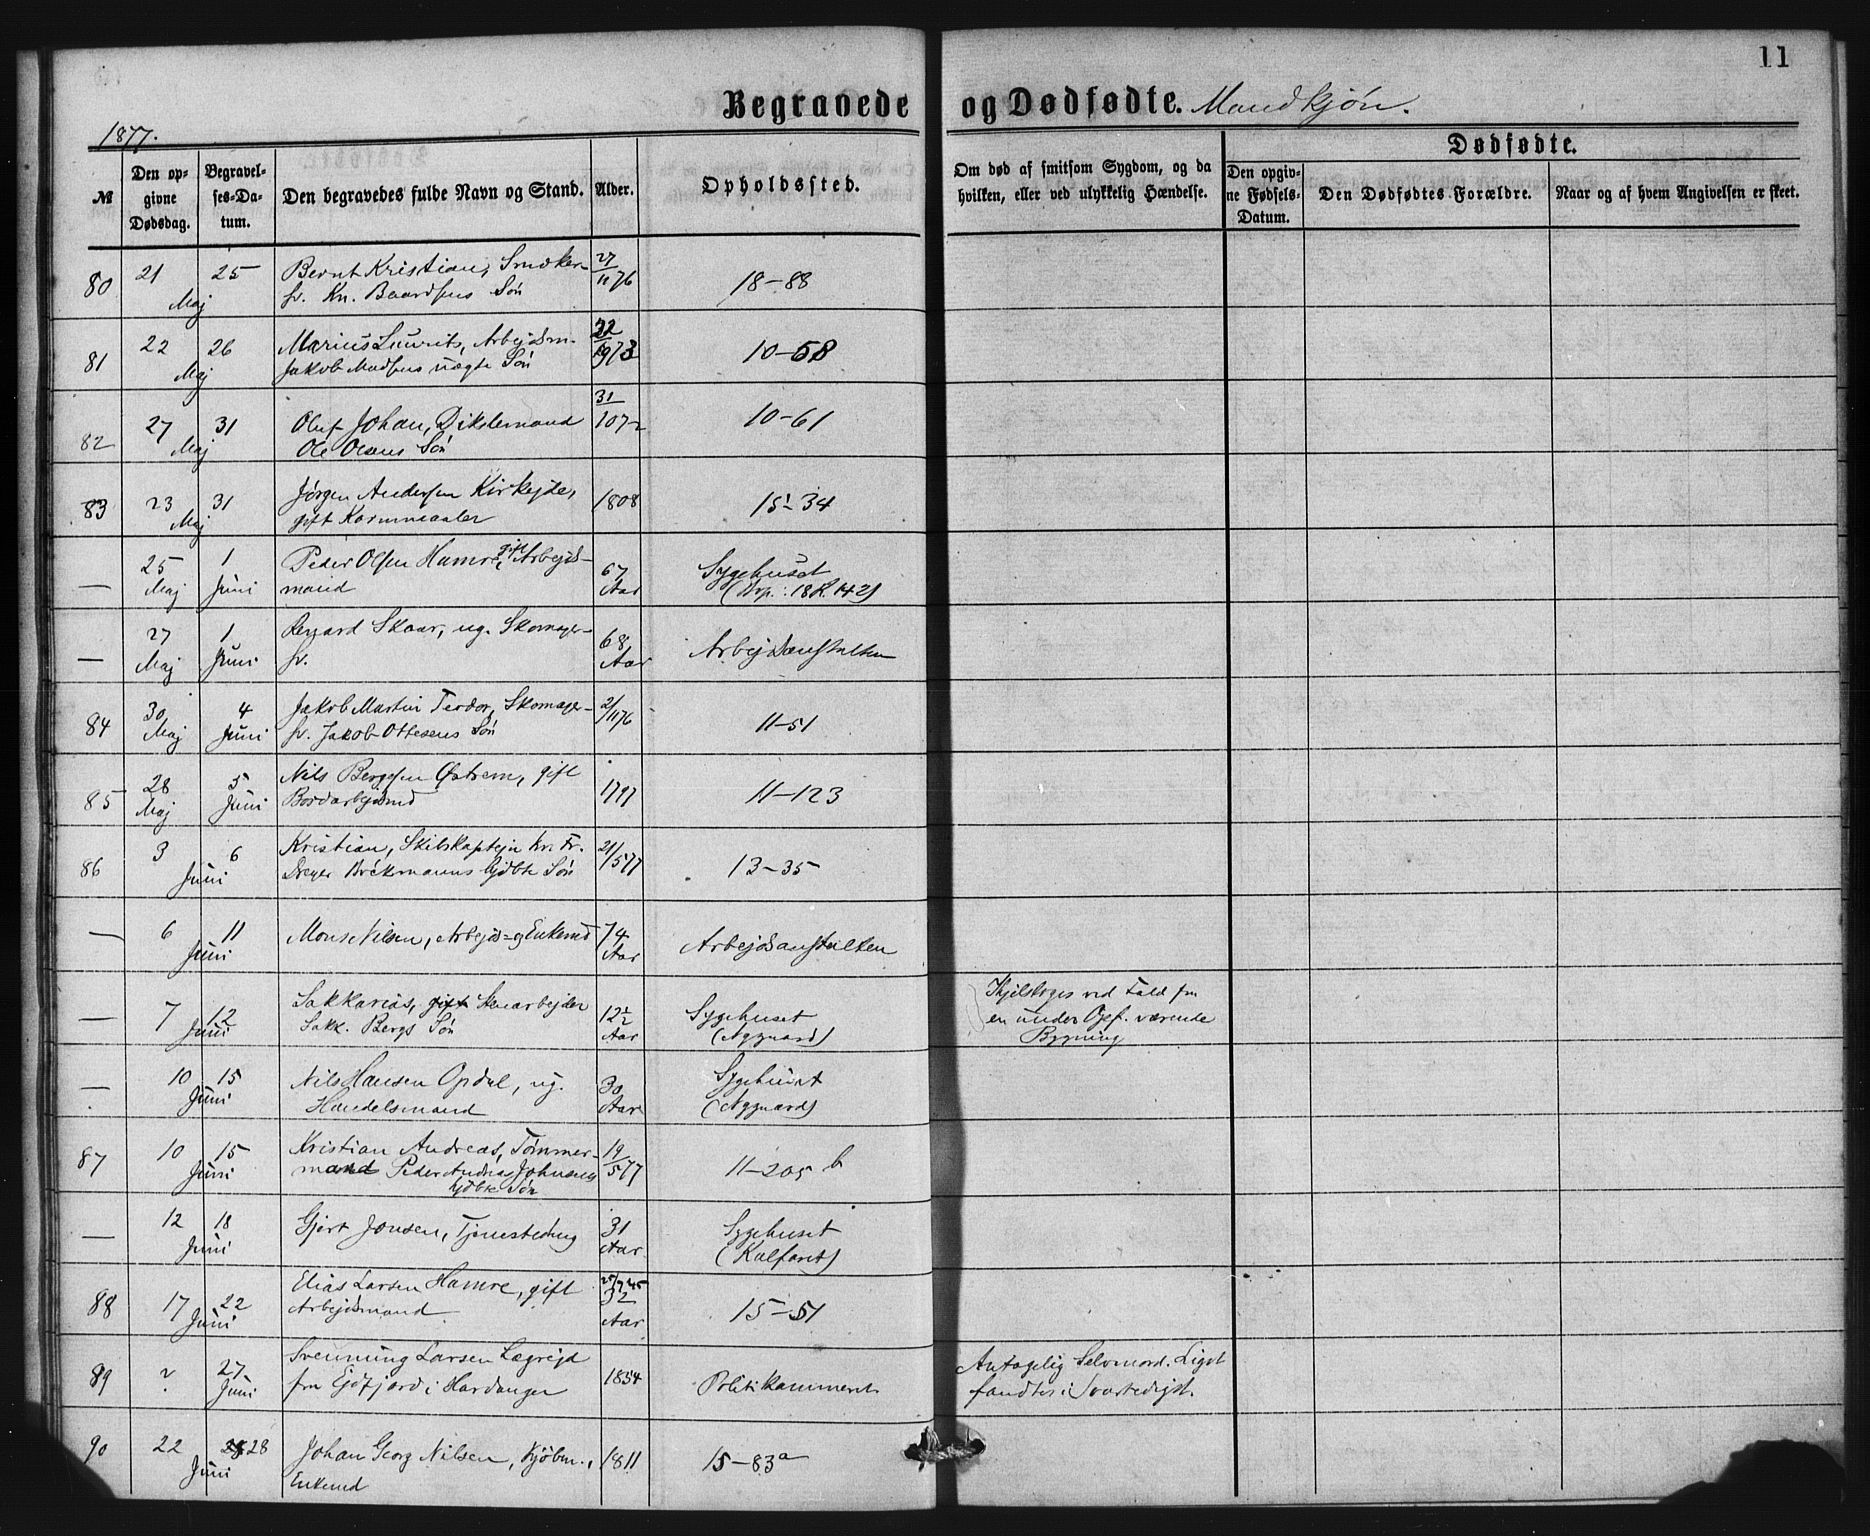 11
Begravede og Dødfødte. Mandkjøn.
1877.
№ Den opgivne Dødsdag. Begravelses-Datum. Den begravedes fulde Navn og Stand. Alder. Opholdssted. Om død af smitsom Sygdom, og da hvilken, eller ved ulykkelig Hændelse. Dødfødte. Den opgivne Fødsels-Datum. Den Dødfødtes Forældre. Naar og af hvem Angivelsen er skeet.
80 21 25 Maj Bernt Kristian, Snedker- 27/11 76
sv. Kn. Baardsens Søn 18-88
81 22 26 Maj Marius Lauritz, Arbejdsm. 73
Jakob Madsens uægte Søn 10-58
82 27 31 Maj Oluf Johan, 31/10 72
Ole Olsens Søn 10-61
83 23 31 Maj Jørgen Andersen Kirkejde, 1808
gift Kornmaaler 15-34
— 25 Maj 1 Juni Peder Olsen Hamre, gift Arbejds- 67 Aar
mand Sygehuset
(Rp: 18R. 142)
— 27 Maj 1 Juni Skaar, ug. Skomager- 68 Aar
sv. Arbejdsanstalten
84 30 Maj 4 Juni Jakob Martin Teodor, Skomager- 2/11 76
sv. Jakob Ottesens Søn 11-51
85 28 Maj 5 Juni Nils Bergesen Østrem, gift 1797
Bordarbejdsmd 11-123
86 3 6 Juni Kristian, Skibskaptejn Kr. Fr. 21/5 77
Dreyer Bröckmanns hjdbte Søn 13-35
— 6 11 Juni Mons Nilsen, Arbejds- og Enkemd 74 Aar Arbejdsanstalten
— 7 12 Juni Sakkarias, gift Stenarbejder 12½ Aar
Sakk. Bergs Søn Sygehuset
(Nygaard)
Ihjelsloges ved Fald fra
en under Opf. værende
Bygning
— 10 15 Juni Nils Hansen Opdal, ug. 30 Aar
Handelsmand Sygehuset
(Nygaard)
87 10 15 Juni Kristian Andreas, Tømmer- 19/5 77
mand Peder Andreas Johnsens
hjdbte Søn 11-205 b
— 12 18 Juni Gjert Jonsen, Tjenestedrng 31 Aar
Sygehuset
(Kalfaret)
88 17 22 Juni Elias Larsen Hamre, gift 25/7 45
Arbejdsmand 32 Aar 15-51
89 ? 27 Juni Svenning Larsen Lægrejd 1854
fra Ejdfjord i Hardanger Politikammeret
Antagelig Selvmord. Liget
fandtes i Svartediget.
90 22 28 Juni Johan Georg Nilsen, Kjøbm., 1811
Enkemd 15-83a